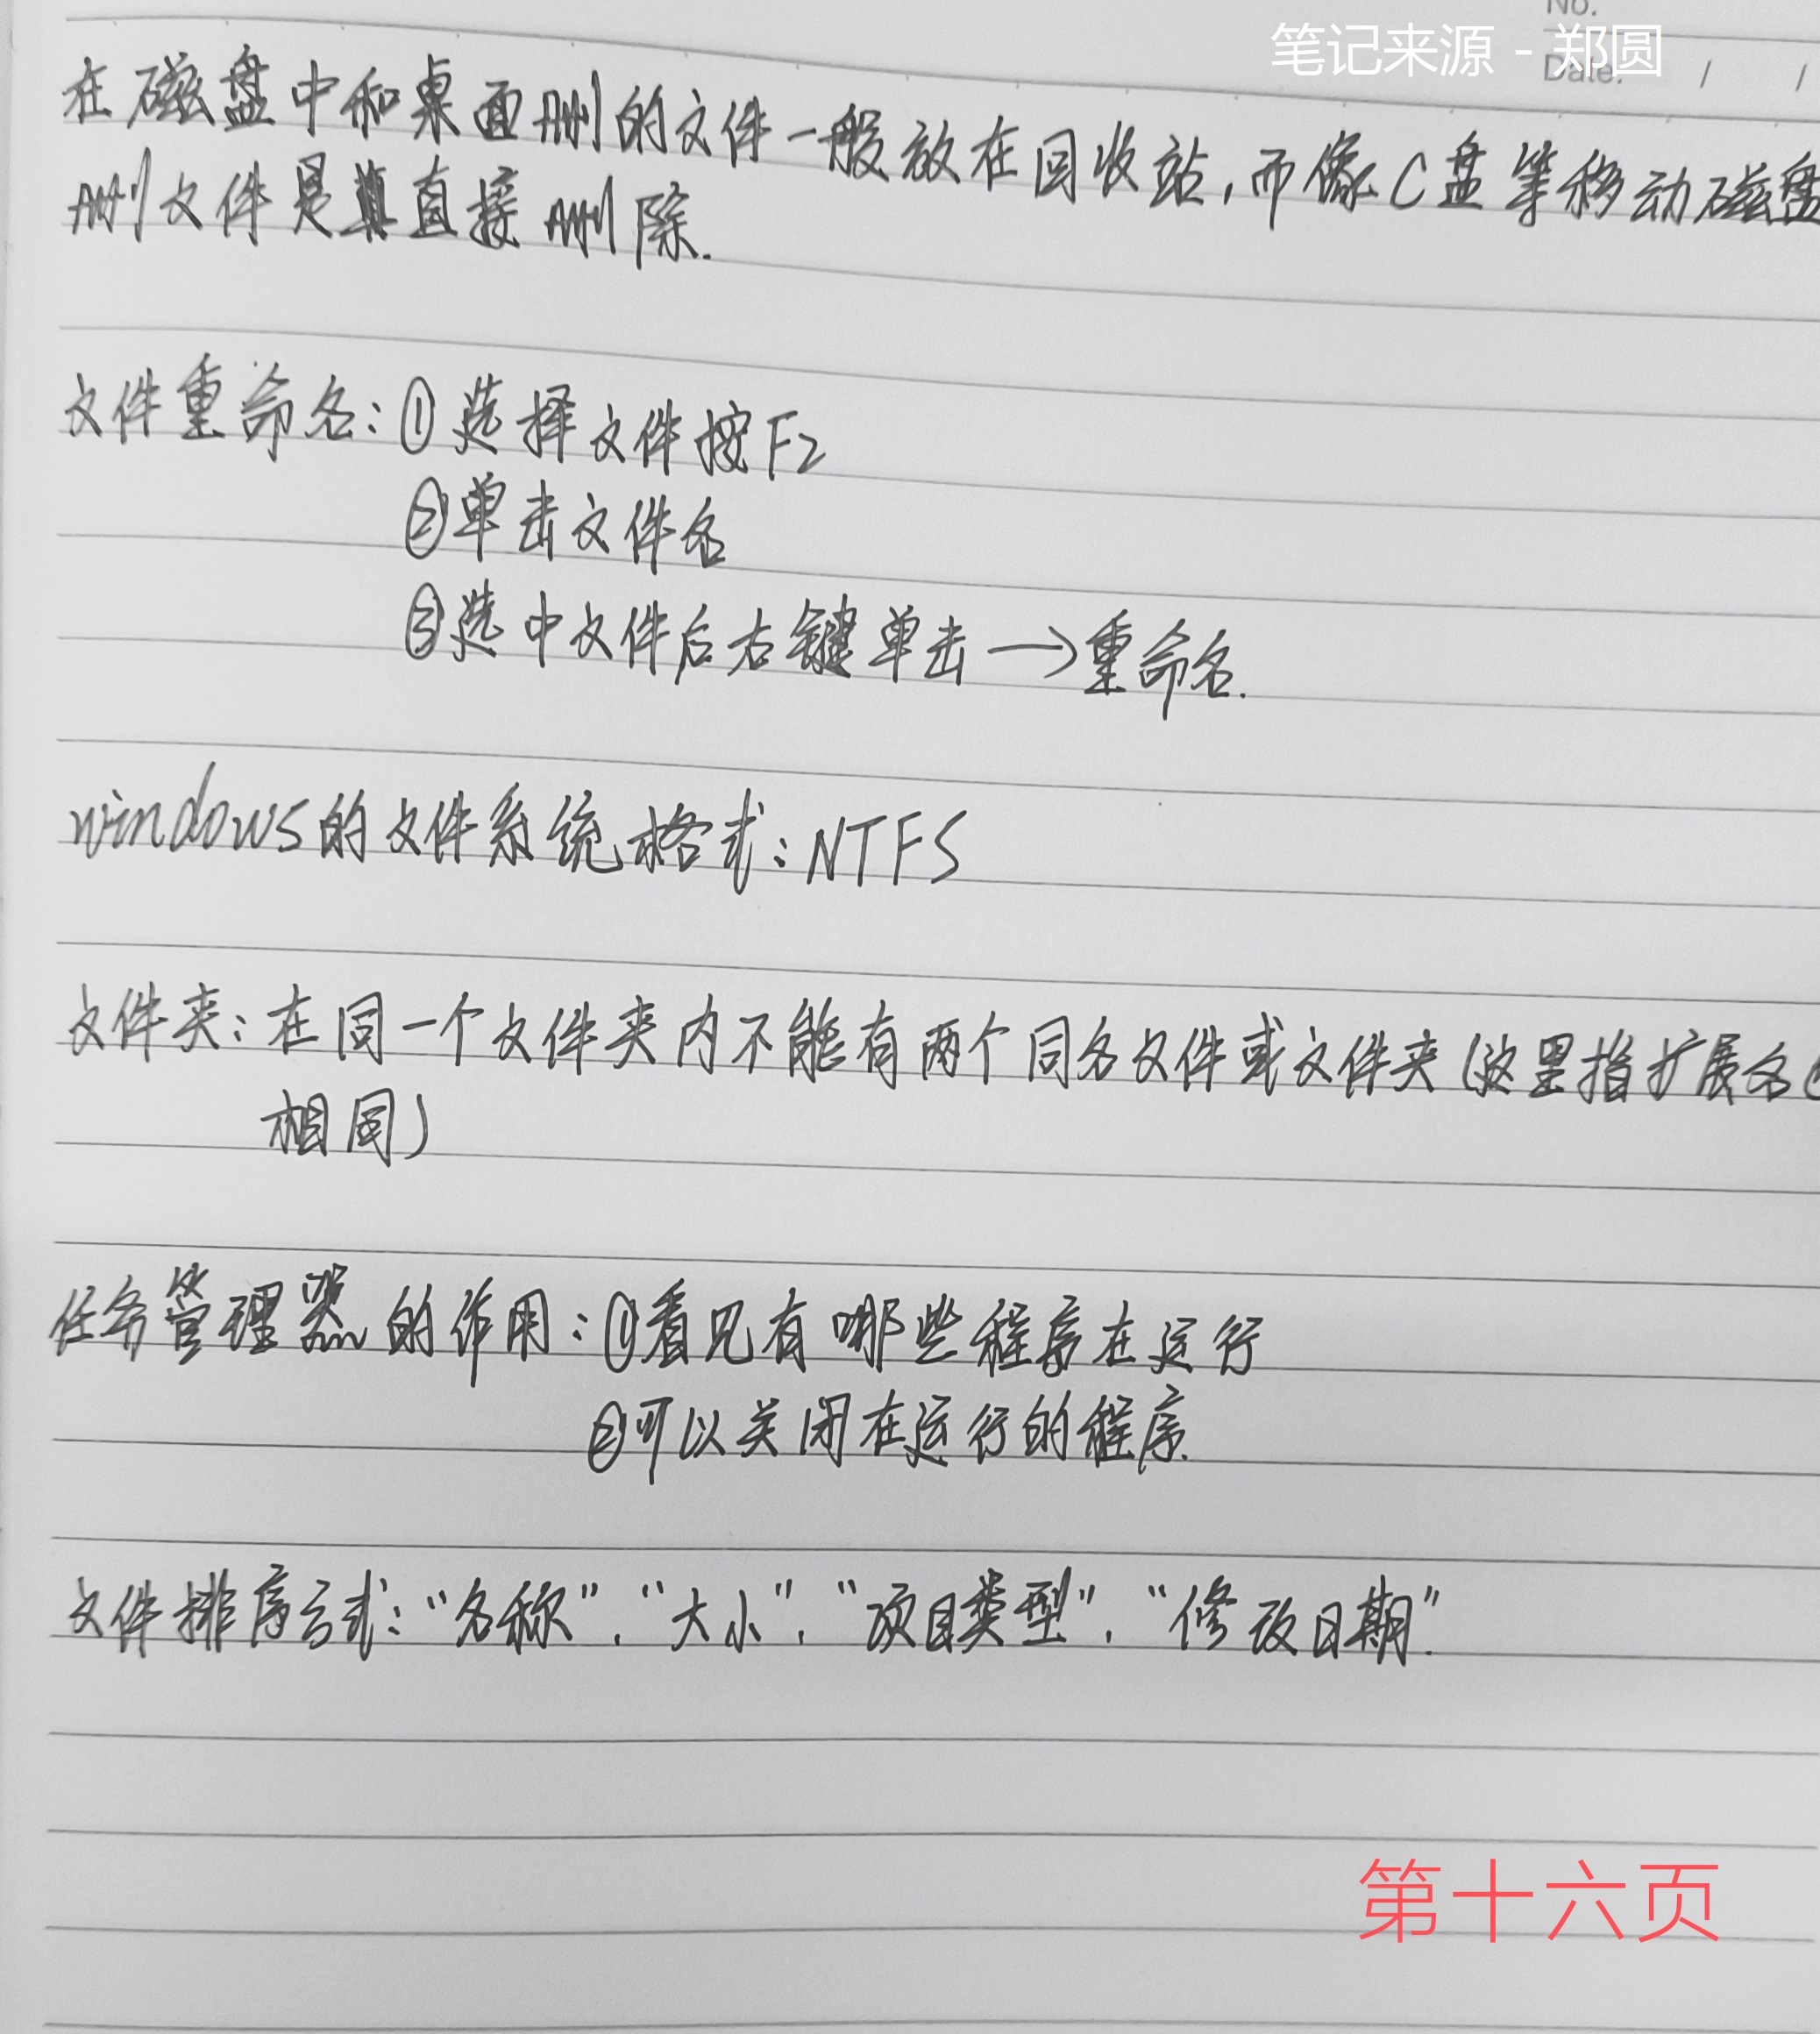 No.
笔记来源 - 郑圆
Date.     /     /
在磁盘中和桌面删的文件一般放在回收站,而像C盘等移动磁盘
删文件是直接删除.
文件重命名:①选择文件按F2
②单击文件名
③选中文件后右键单击→重命名.
windows的文件系统格式:NTFS
文件夹:在同一个文件夹内不能有两个同名文件或文件夹(这里指扩展名
相同)
任务管理器的作用:①看见有哪些程序在运行
②可以关闭在运行的程序.
文件排序方式:“名称”,“大小”,“项目类型”,“修改日期”.
第十六页